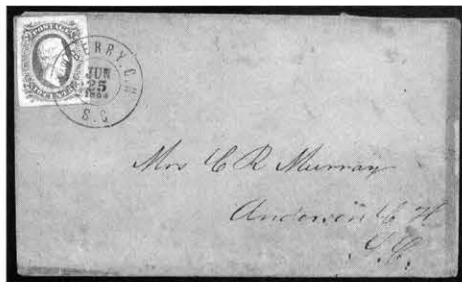 ERRY C.H.
JUN
25
S.C
Mrs C R Murray
Anderson C H
S.C.